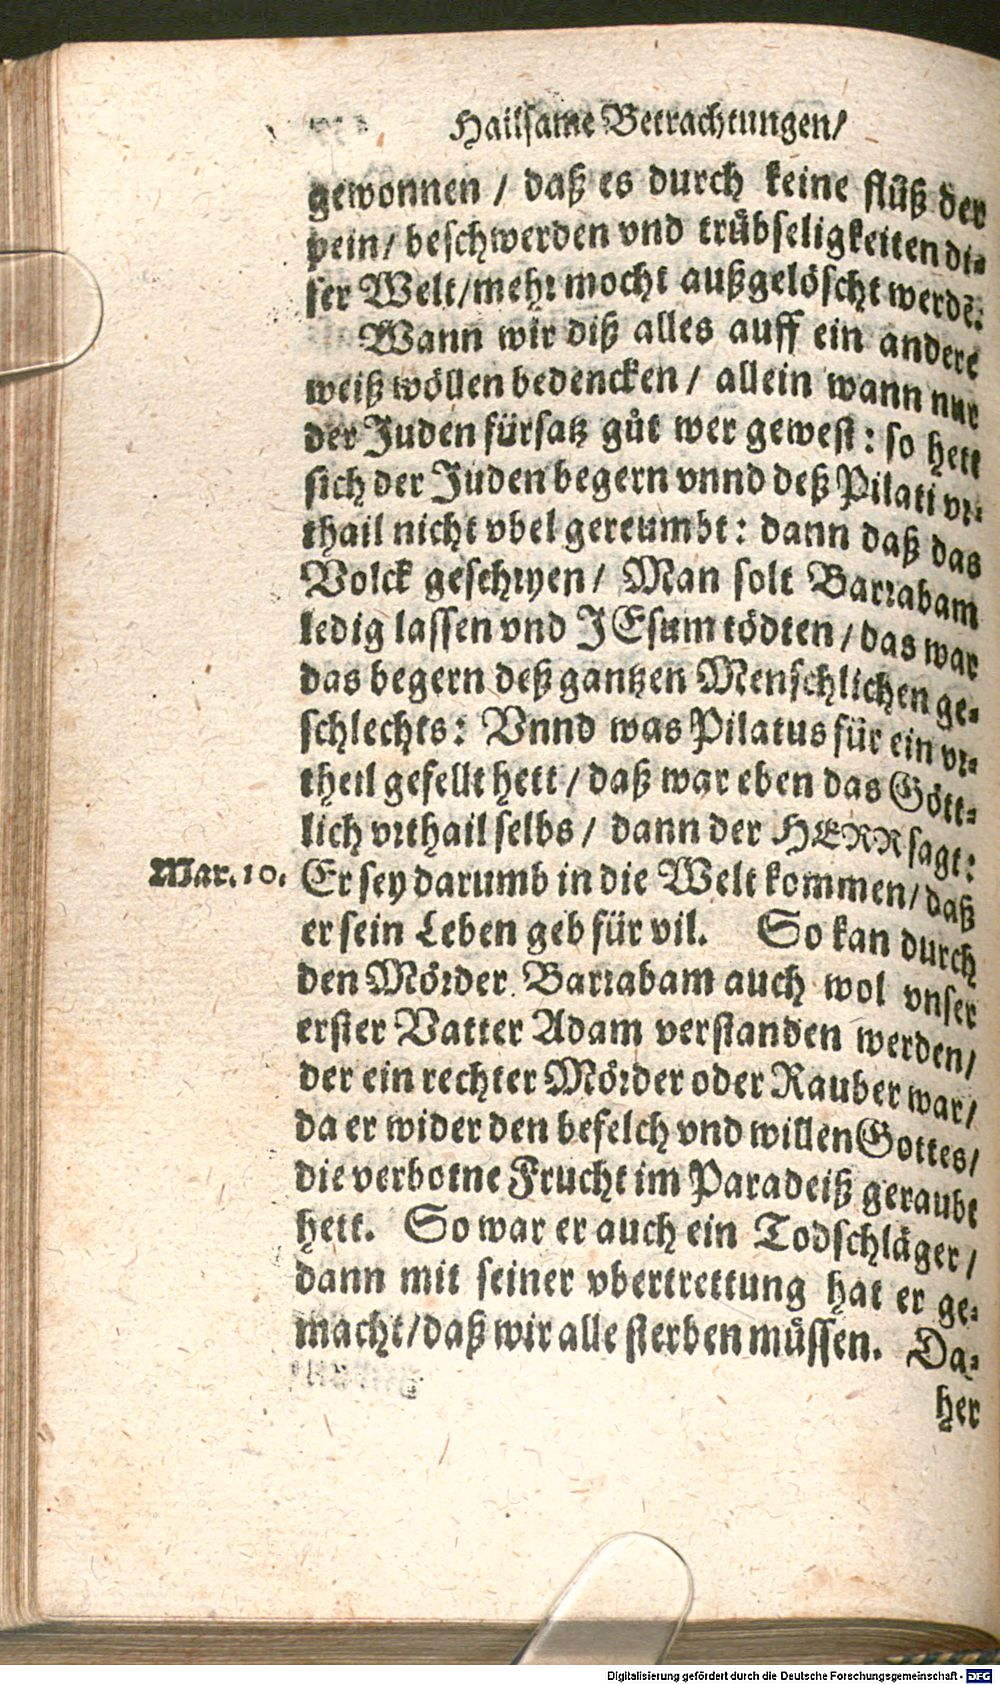 Hailsame Betrachtungen/
gewonnen / daß es durch keine flüß der
pein/ beschwerden vnd trübseligkeiten di-
ser Welt/mehr mocht außgelöscht werdē:
Wann wir diß alles auff ein andere
weiß wöllen bedencken / allein wann nur
der Juden fürsatz gůt wer gewest: so hett
sich der Juden begern vnnd deß Pilati vr-
thail nicht vbel gereumbt: dann daß das
Volck geschryen/ Man solt Barrabam
ledig lassen vnd JEsum tödten / das war
das begern deß gantzen Menschlichen ge-
schlechts: Vnnd was Pilatus für ein vr-
theil gefellt hett / daß war eben das Gött-
lich vrthail selbs / dann der HERR sagt:
Mar. 10. Er sey darumb in die Welt kommen/ daß
er sein Leben geb für vil. So kan durch
den Mörder Barrabam auch wol vnser
erster Vatter Adam verstanden werden/
der ein rechter Mörder oder Rauber war/
da er wider den befelch vnd willen Gottes/
die verbotne Frucht im Paradeiß geraubt
hett. So war er auch ein Todschläger /
dann mit seiner vbertrettung hat er ge-
macht/daß wir alle sterben müssen. Da-
her
Digitalisierung gefördert durch die Deutsche Forschungsgemeinschaft - DFG